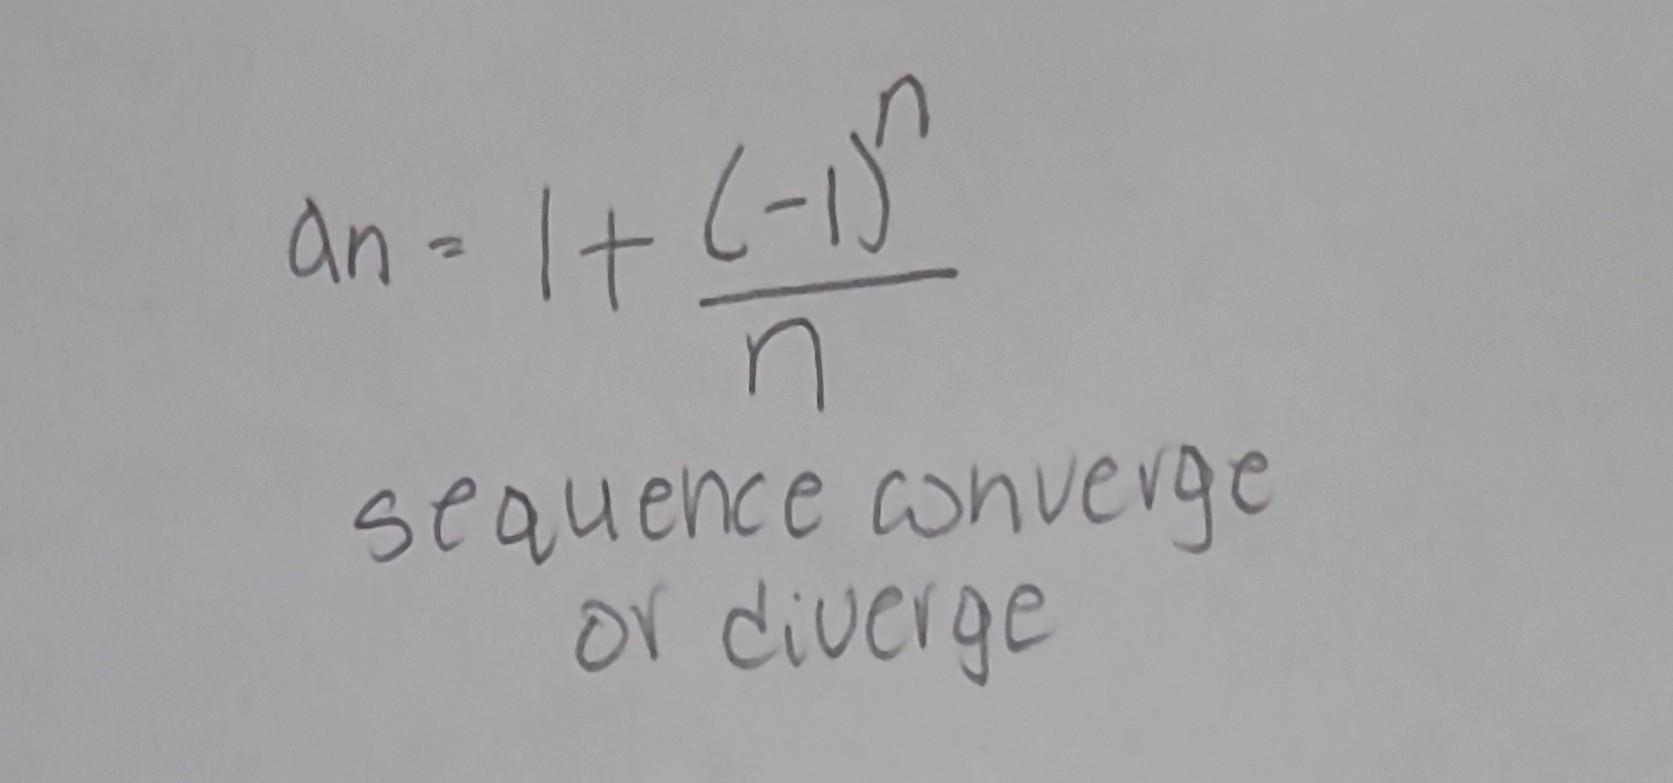 an = 1 + (-1)^n / n
sequence converge
or diverge